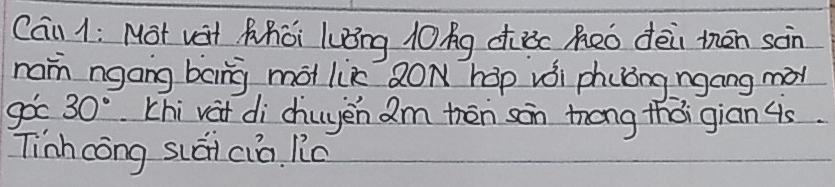 Câu 1: Một vật khối lượng 10kg được kéo đều trên sàn
nằm ngang bằng một lực 20N hợp với phương ngang một
góc 30°. Khi vật di chuyển 2m trên sàn trong thời gian 4s.
Tính công suất của lực